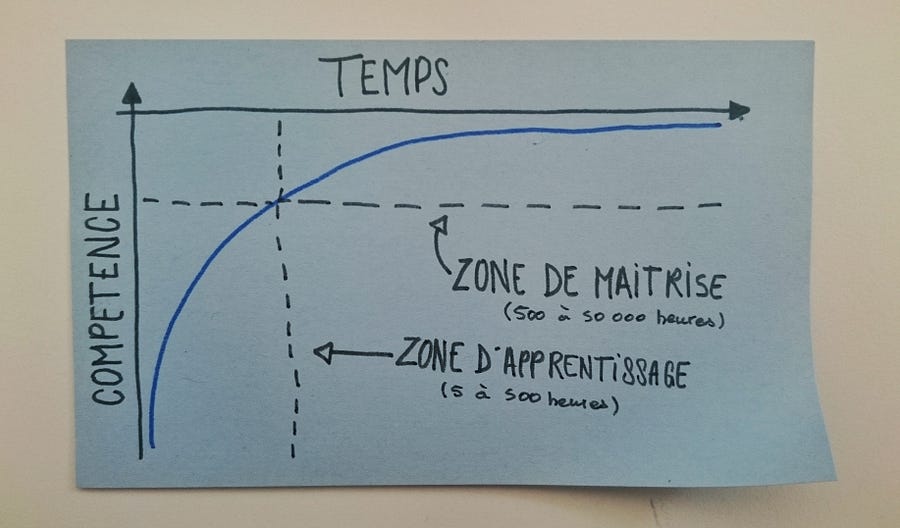 TEMPS
COMPETENCE
ZONE DE MAiTRiSE
(500 à 50 000 heures)
ZONE D'APPRENTiSSAGE
(5 à 500 heures)